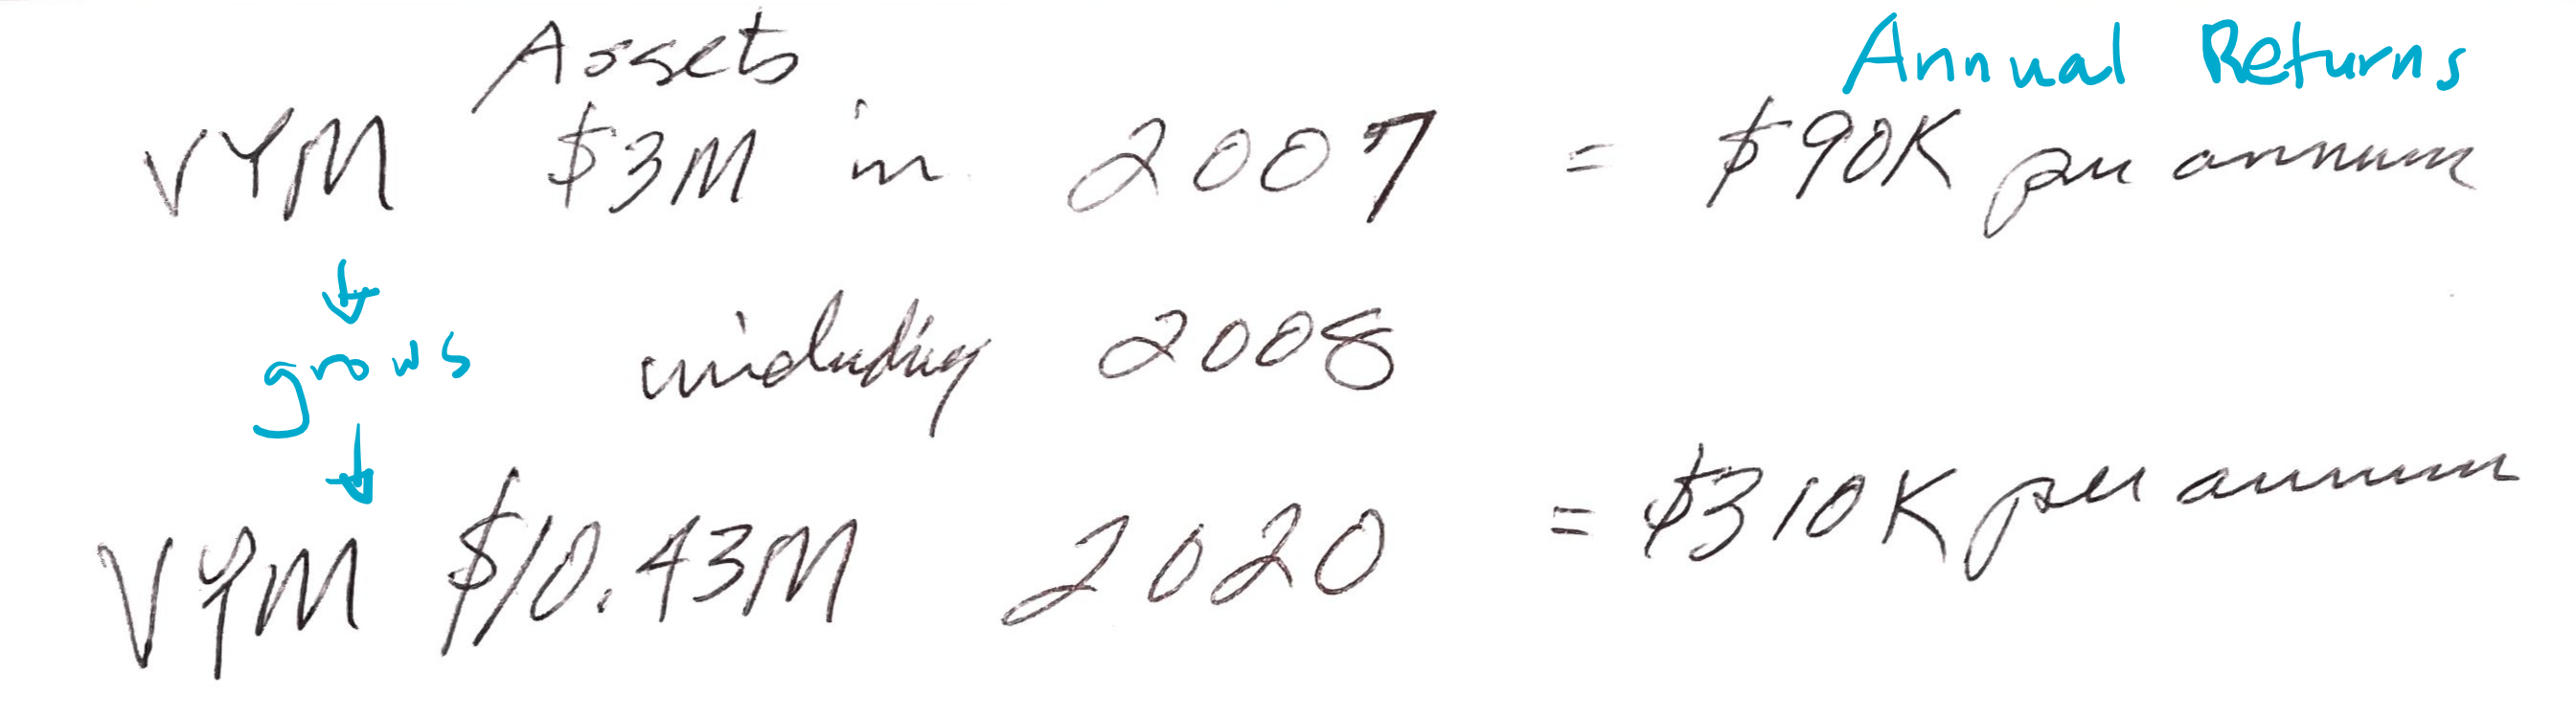 Assets Annual Returns
VYM $3M in 2007 = $90K per annum
↓
grows including 2008
↓
VYM $10.43M 2020 = $310K per annum